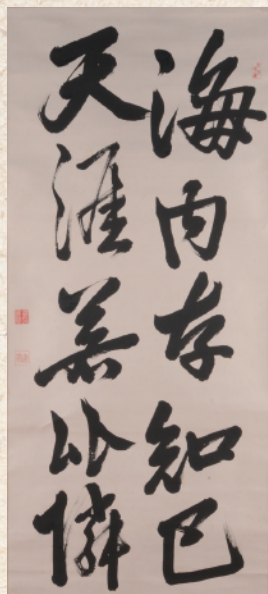 海内存知己
天涯若比憐